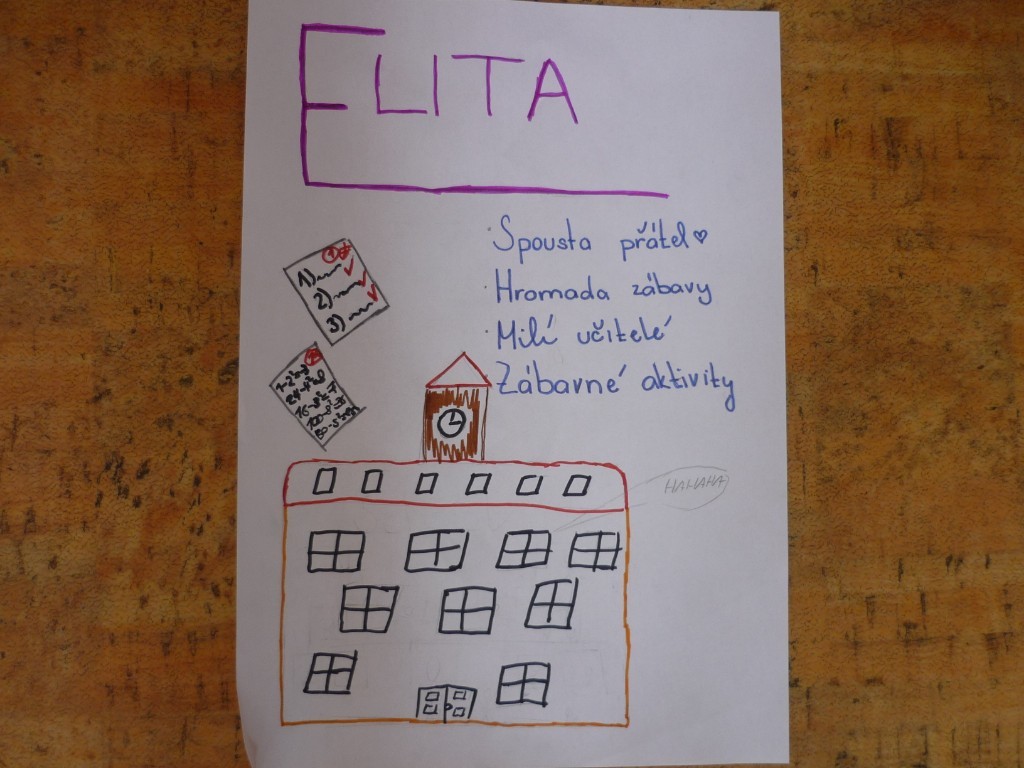 ELITA
Spousta přátel♥
Hromada zábavy
Milí učitelé
Zábavné aktivity
1)
2)
3)
HAHAHA